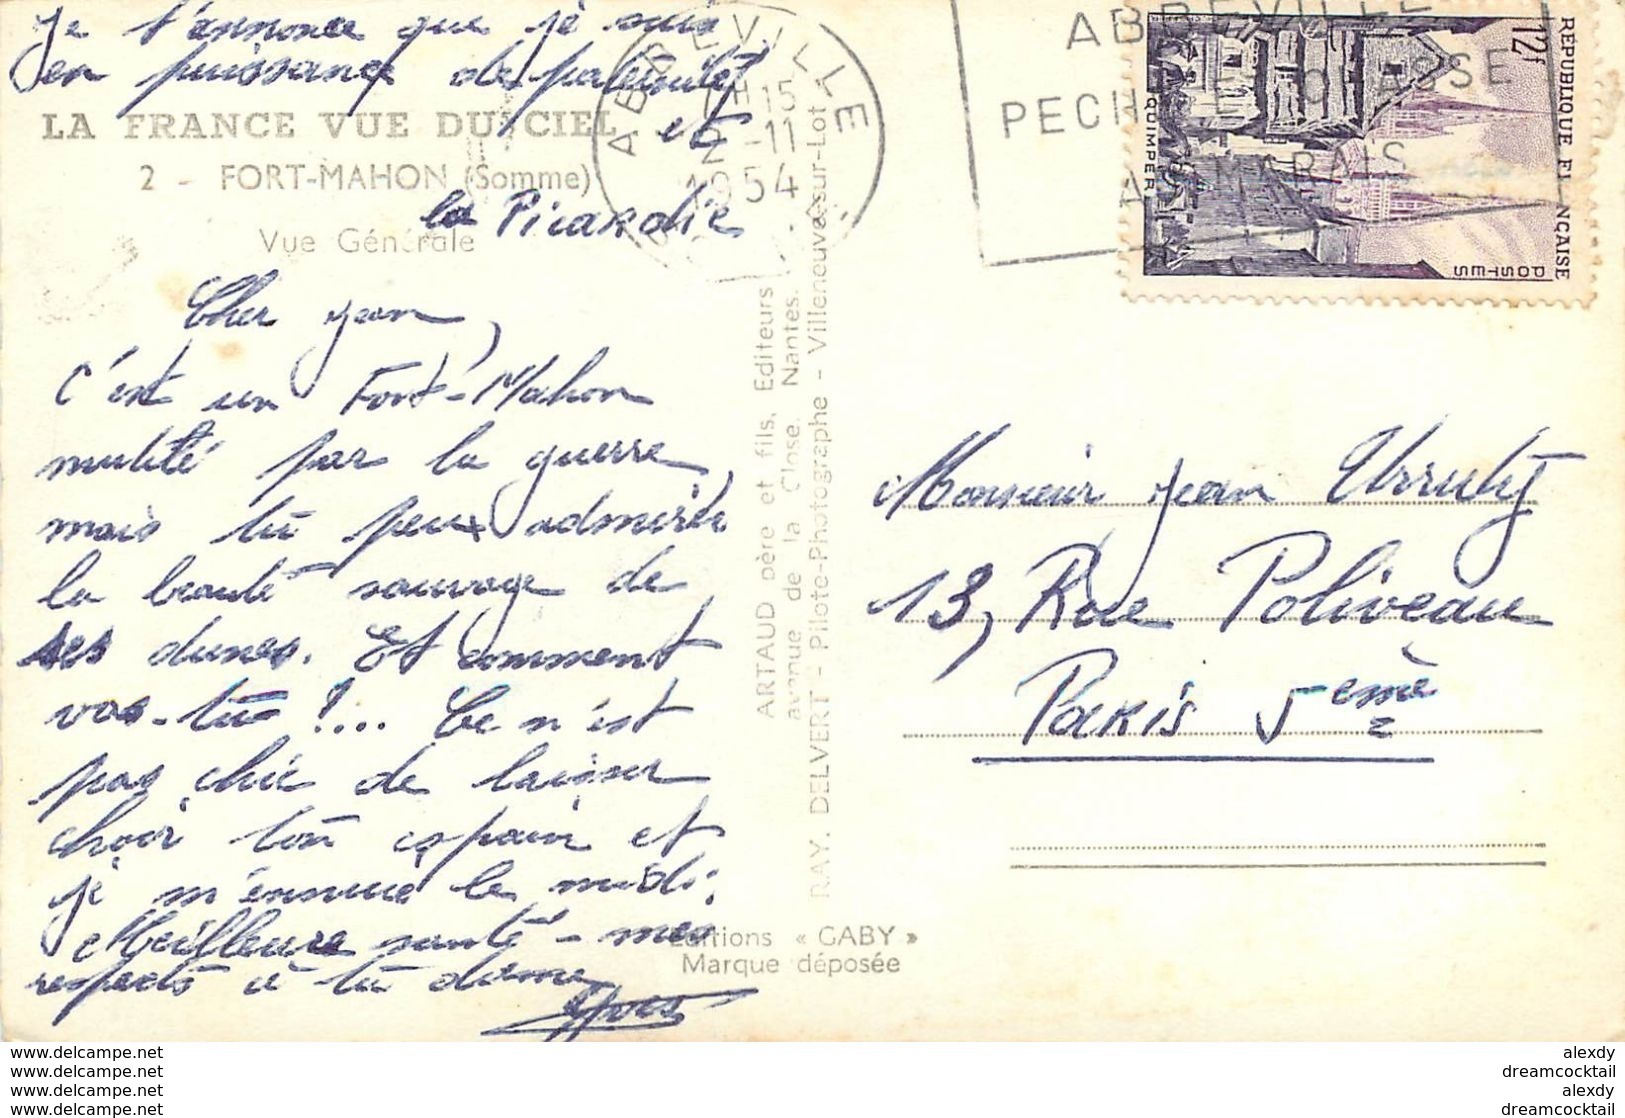 Je t'annonce que je suis
en puissance de paternité
et
LA FRANCE VUE DU CIEL
2 - FORT-MAHON (Somme)
la Picardie
Vue Générale
Cher Jean,
C'est un Fort-Mahon
mutité par la guerre,
mais tu peux admirer
la beauté sauvage de
ses dunes. Et comment
vas-tu !... Ce n'est
pas chic de laisser
choir ton copain et
je m'ennuie le midi.
Meilleure santé - mes
respects à ta dame
Yves
ARTAUD père et fils, Editeurs
avenue de la Close, Nantes.
RAY. DELVERT - Pilote-Photographe - Villeneuve-sur-Lot
Editions « GABY »
Marque déposée
ABBEVILLE
H15
2 -11
1954
ABBEVILLE
PECHE CHASSE
MARAIS
12f
REPUBLIQUE FRANÇAISE
POSTES
QUIMPER
Monsieur Jean Urruty
13, Rue Poliveau
Paris 5ème
www.delcampe.net
www.delcampe.net
www.delcampe.net
www.delcampe.net
alexdy
dreamcocktail
alexdy
dreamcocktail